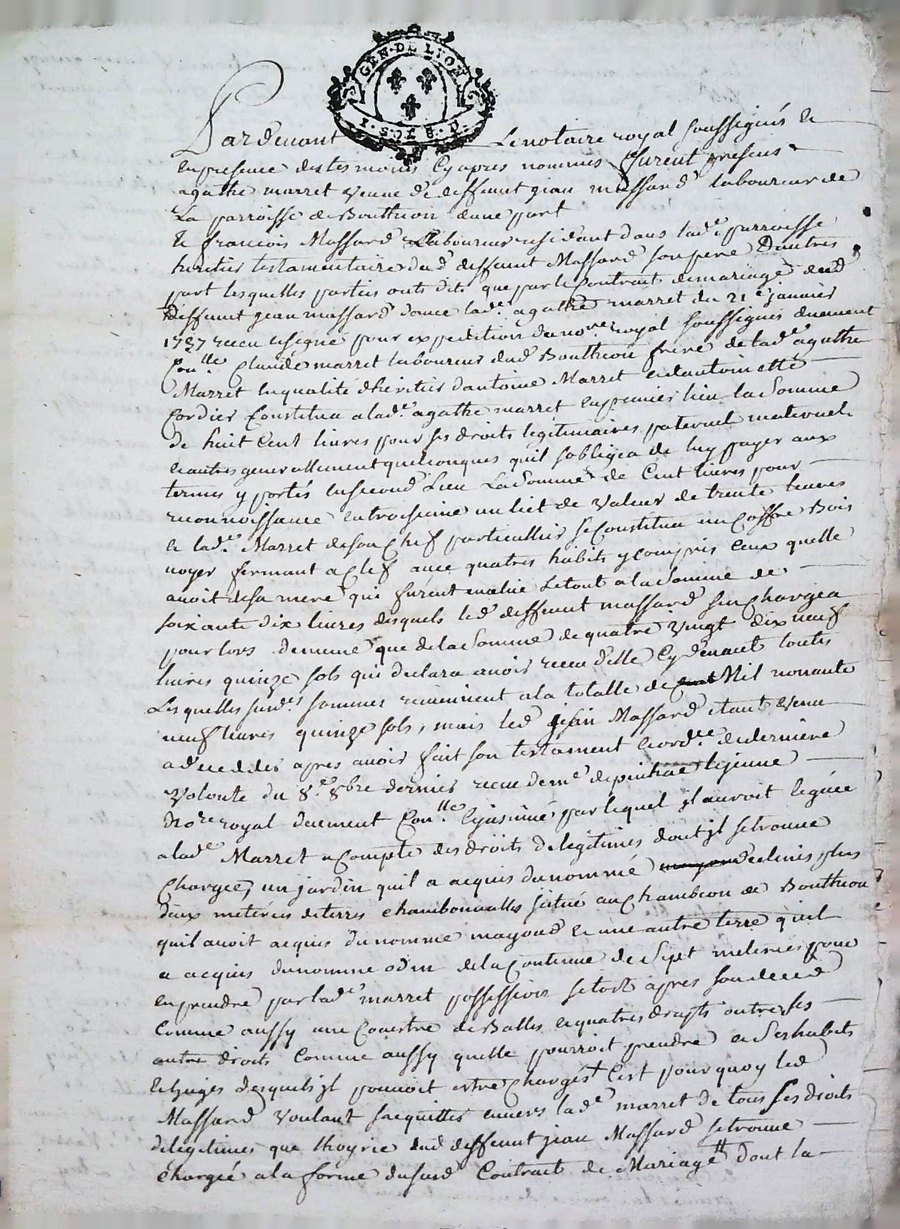 GEN·DE LYON
I·SOL·S·D·
Pardevant Le notaire royal soussignés Et
En presence des temoins Cy apres nommés furent presens
agathe marret veuve de deffunt jean massard laboureur de
La parroisse de Bouthéon dune part
Et françois Massard Laboureur residant dans lad.e parroisse
heritier testamentaire dud deffunt Massard son pere Dautres
part lesquelles parties onts dits que par le Contrait de mariage dud
deffunt jean massard avec lad.e agathe marret du 21.e janvier
1727 receu et signé pour expedition du no.re royal soussignés duement
Con.lle Claude marret laboureur dud Bouthéon frere de lad.e agathe
Marret En qualité dheritier dantoine Marret et dantoinette
Cordier Constitua a lad.e agathe marret en premier lieu la somme
de huit Cent livres pour ses droits legitimaires paternel maternel
et autres generallement quelconques quil sobligea de luy payer aux
termes y portés En second Lieu La Somme de Cent livres pour
reconnoissance En troisieme un liet de valeur de trente livres
Et lad.e Marret de son Chef particullier se Constitua un Coffre Bois
noyer fermant a Clef avec quatres habits y compris Ceux quelle
avoit de sa mere que furent evalué Le tout a la somme de
soixante dix livres desquels led deffunt massard se Chargea
pour lors de meme que de la Somme de quatre vingt dix neuf
livres quinze sols qui declara avoir receu delle Cy devant toutes
Lesquelles susd.es sommes reviennent a la totalle de Mil nonante
neuf livres quinze sols, mais led jean Massard etant venu
a decedder apres avoir fait son testament Et ord.ce de derniere
volonté du 8.e 8bre dernier receu de m.e le jeune
No.re royal duement Con.lle Et insinué par lequel jl auroit legué
a lad.e Marret a Compte des droits de legitimes dont jl se trouve
Chargée, un jardin quil a acquis du nommé plus
deux meterés de terres Chambonnalles situé au Chambeon de Bouthéon
quil avoit acquis du nommé mayoud Et une autre terre quil
a acquis du nommé odin de la Contenue de Sept meterés pour
en prendre par lad.e marret possession se tot après son decès
Comme aussy une Couestre de Balles et quatres drapts outre ses
autre droits Comme aussy quelle pourroit prendre Ses habits
Et linges desquels jl pouvoit estre Chargés C'est pour quoy led
Massard voulant sacquitter envers lad.e marret de tous ses droits
de legitimes que lhoyrie dud deffunt jean Massard se trouve
Chargée a la forme dususd Contract de Mariage dont la